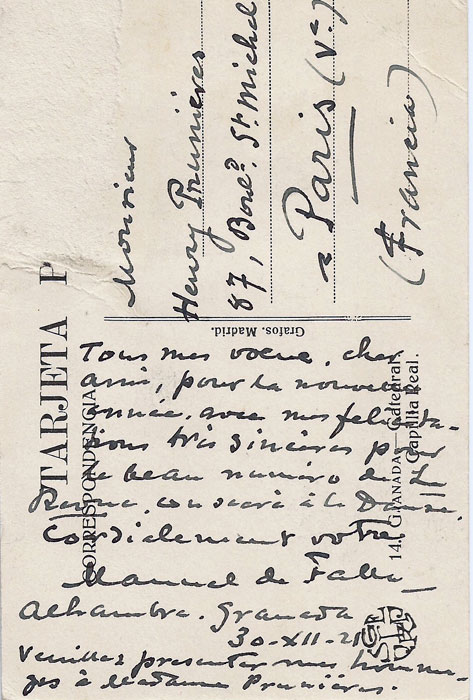 TARJETA P
CORRESPONDENCIA
Monsieur
Henry Prunières
87, Boulᵈ. St. Michel
Paris (Vᵉ)
(Francia)
Grafos. Madrid.
14. GRANADA.—Catedral.
Capilla Real.
Tous mes voeux, cher
ami, pour la nouvelle
année, avec mes félicita-
tions très sincères pour
le beau numéro de la
Revue, consacré à la Danse.
Cordialement votre
Manuel de Falla
Alhambra. Granada
30-XII-21
Veuillez presenter mes homma-
ges à Madame Prunières